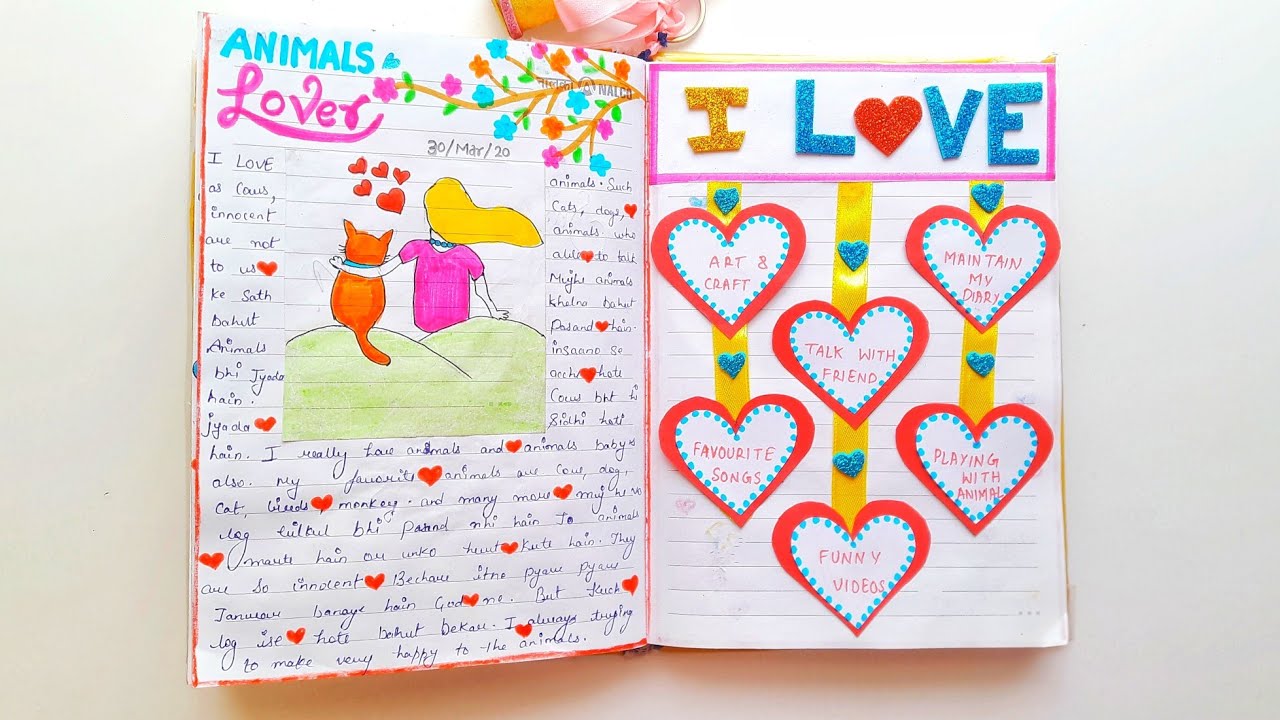 ANIMALS
Lover
नालको NALCO
30/Mar/20
I LOVE animals. Such
as Cows, Cats, dogs,
innocent animals. who
are not able to talk
to us Mujhe animals
ke Sath khelna bahut
Bahut Pasand hain.
Animals insaano se
bhi Jyada acche hote
hain. Cows bht hi
jyada Sidhi hoti
hain. I really love animals and animals babys
also. My favorite animals are cow, dog,
Cat, birds monkey. and many more mujhe vo
log bilkul bhi Pasand nhi hain Jo animals
marte hain or unko hurt Kute hain. They
are So innocent Bechare itne pyare pyare
Janwar banaye hain God ne. But Kuch
log ise hote bahut bekar. I always trying
to make very happy to the animals.
I LOVE
ART &
CRAFT
MAINTAIN
MY
DIARY
TALK WITH
FRIEND
FAVOURITE
SONGS
PLAYING
WITH
ANIMAL
FUNNY
VIDEOS